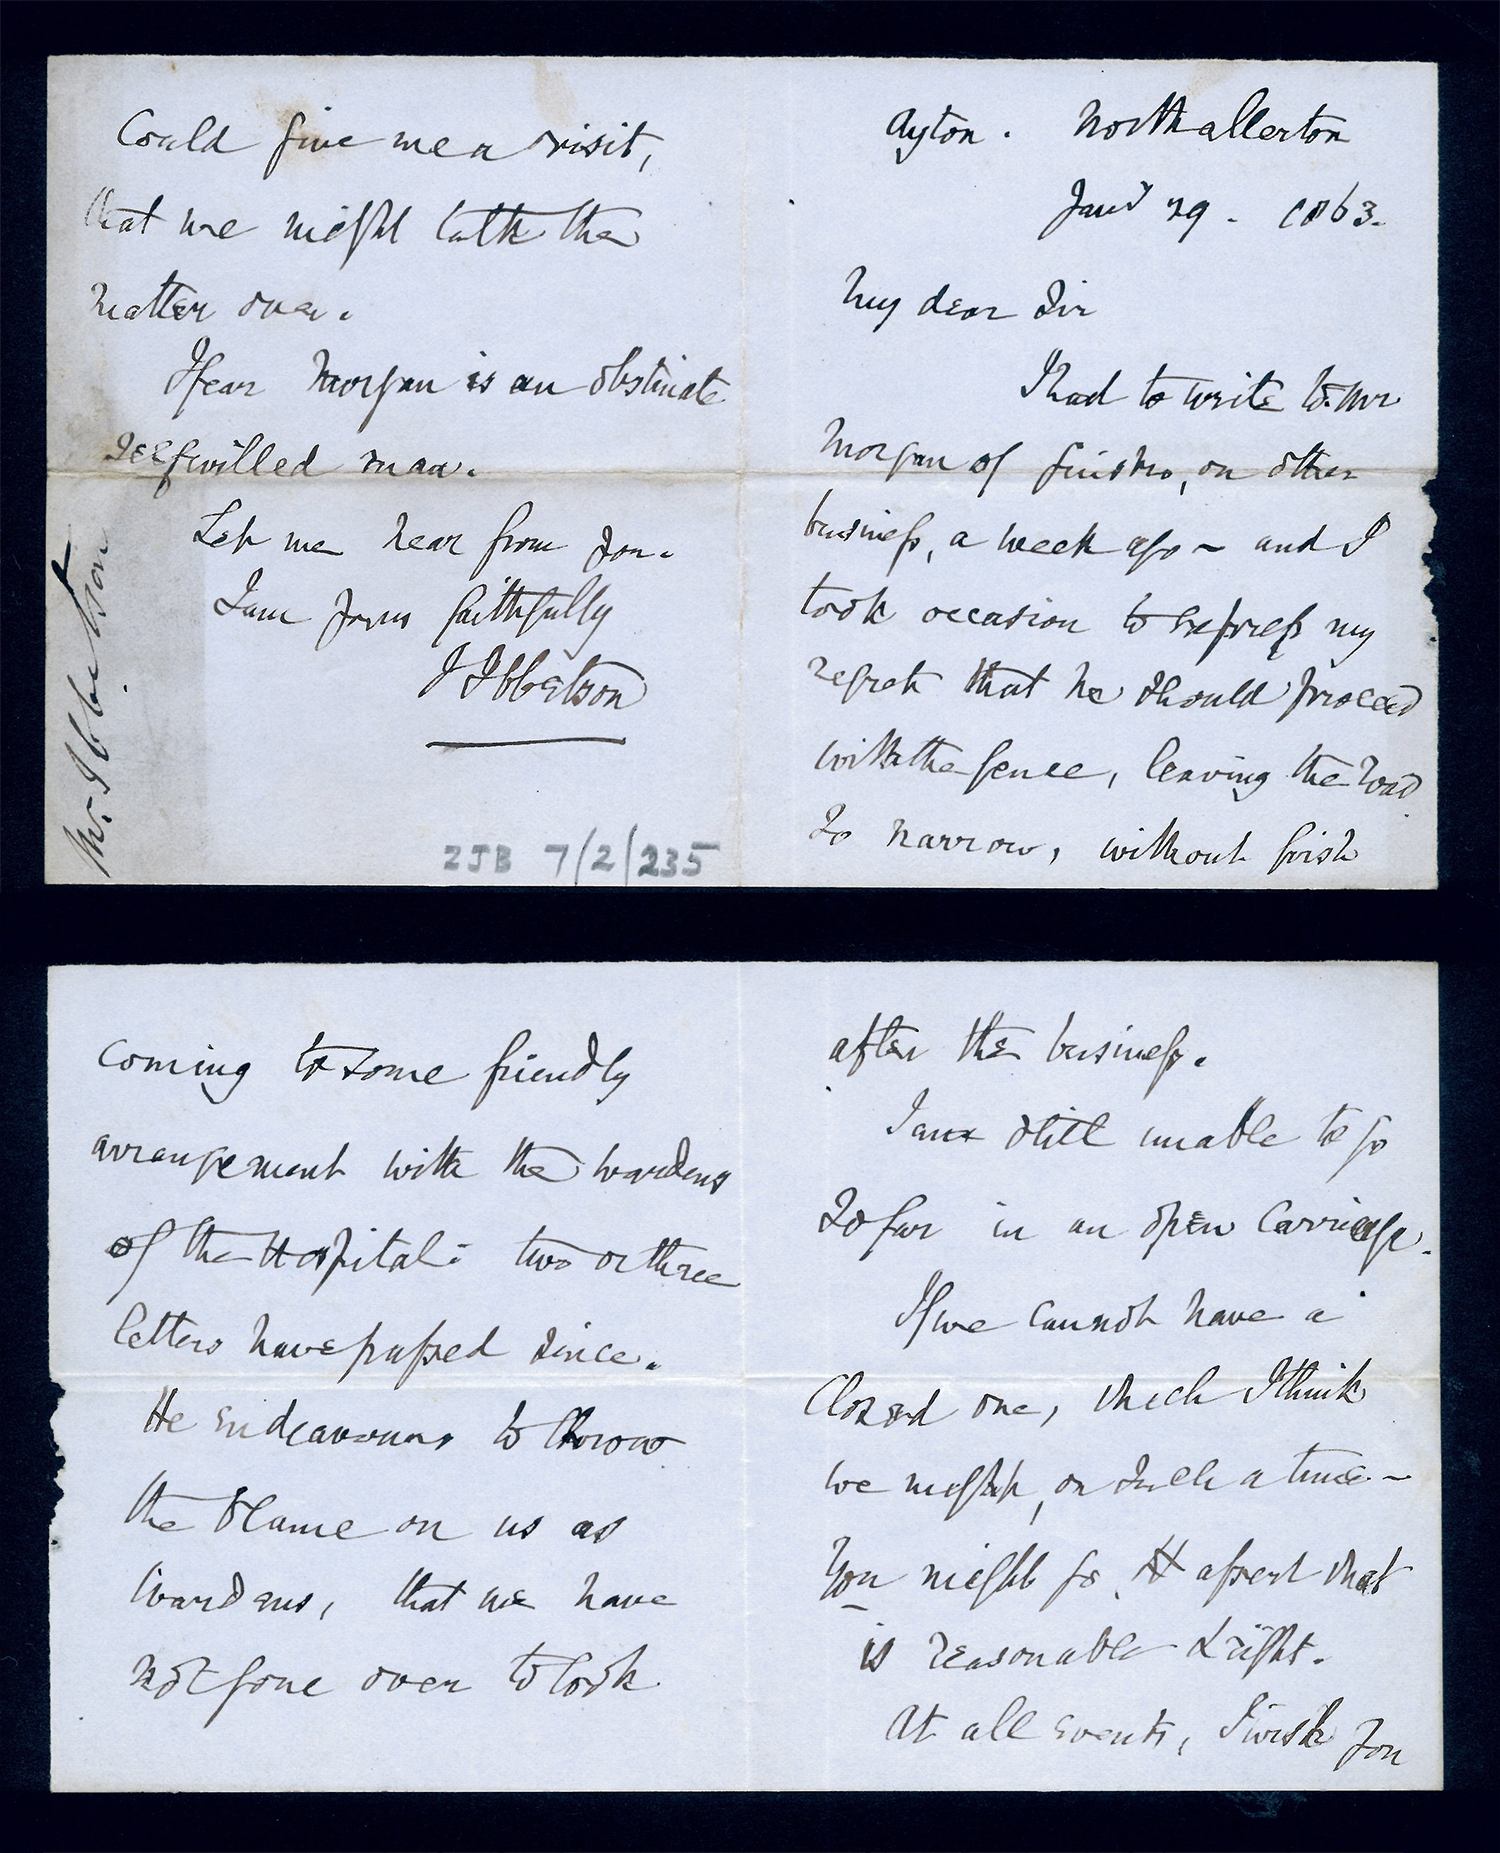 Ayton. Northallerton
Jany 29. 1863.
My dear Sir
I had to write to Mr
Morgan of, on other
business, a week ago ~ and I
took occasion to express my
regret that he should proceed
with the fence, leaving the road
so narrow, without first
coming to some friendly
arrangement with the Wardens
of the Hospital: two or three
letters have passed since.
He endeavours to throw
the blame on us as
Wardens, that we have
not gone over to look
after the business.
I am still unable to go
so far in an open carriage.
If we cannot have a
closed one, which I think
we might, on such a time ~
You might go & assert what
is reasonable & right.
At all events, I wish you
could give me a visit,
that we might talk the
matter over.
I fear Morgan is an obstinate
selfwilled man.
Let me hear from you.
I am yours faithfully
J Ibbetson
Mr. Ibbetson
ZJB 7/2/235